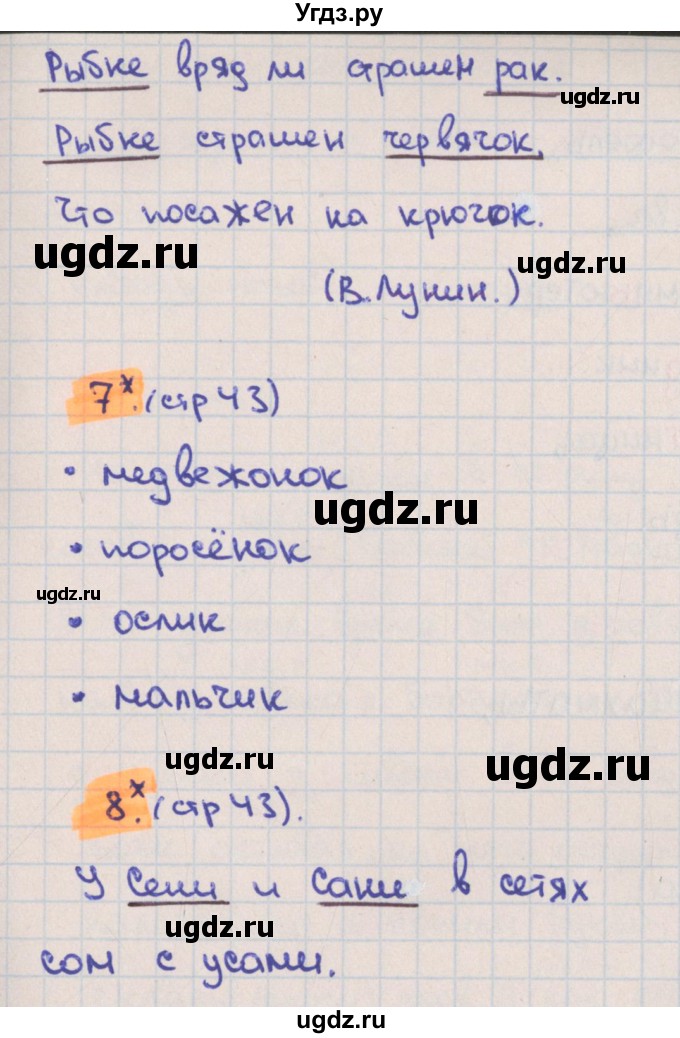 Угдз.ру
Рыбке вряд ли страшен рак.
ugdz.ru
Рыбке страшен червячок,
Что посажен на крючок.
ugdz.ru
ugdz.ru
(В.Лунин.)
7*. (стр 43)
• медвежонок
ugdz.ru
• поросёнок
ugdz.ru
• ослик
• мальчик
ugdz.ru
ugdz.ru
8*. (стр 43).
У Сени и Сани в сетях
ugdz.ru
сом с усами.
ugdz.ru